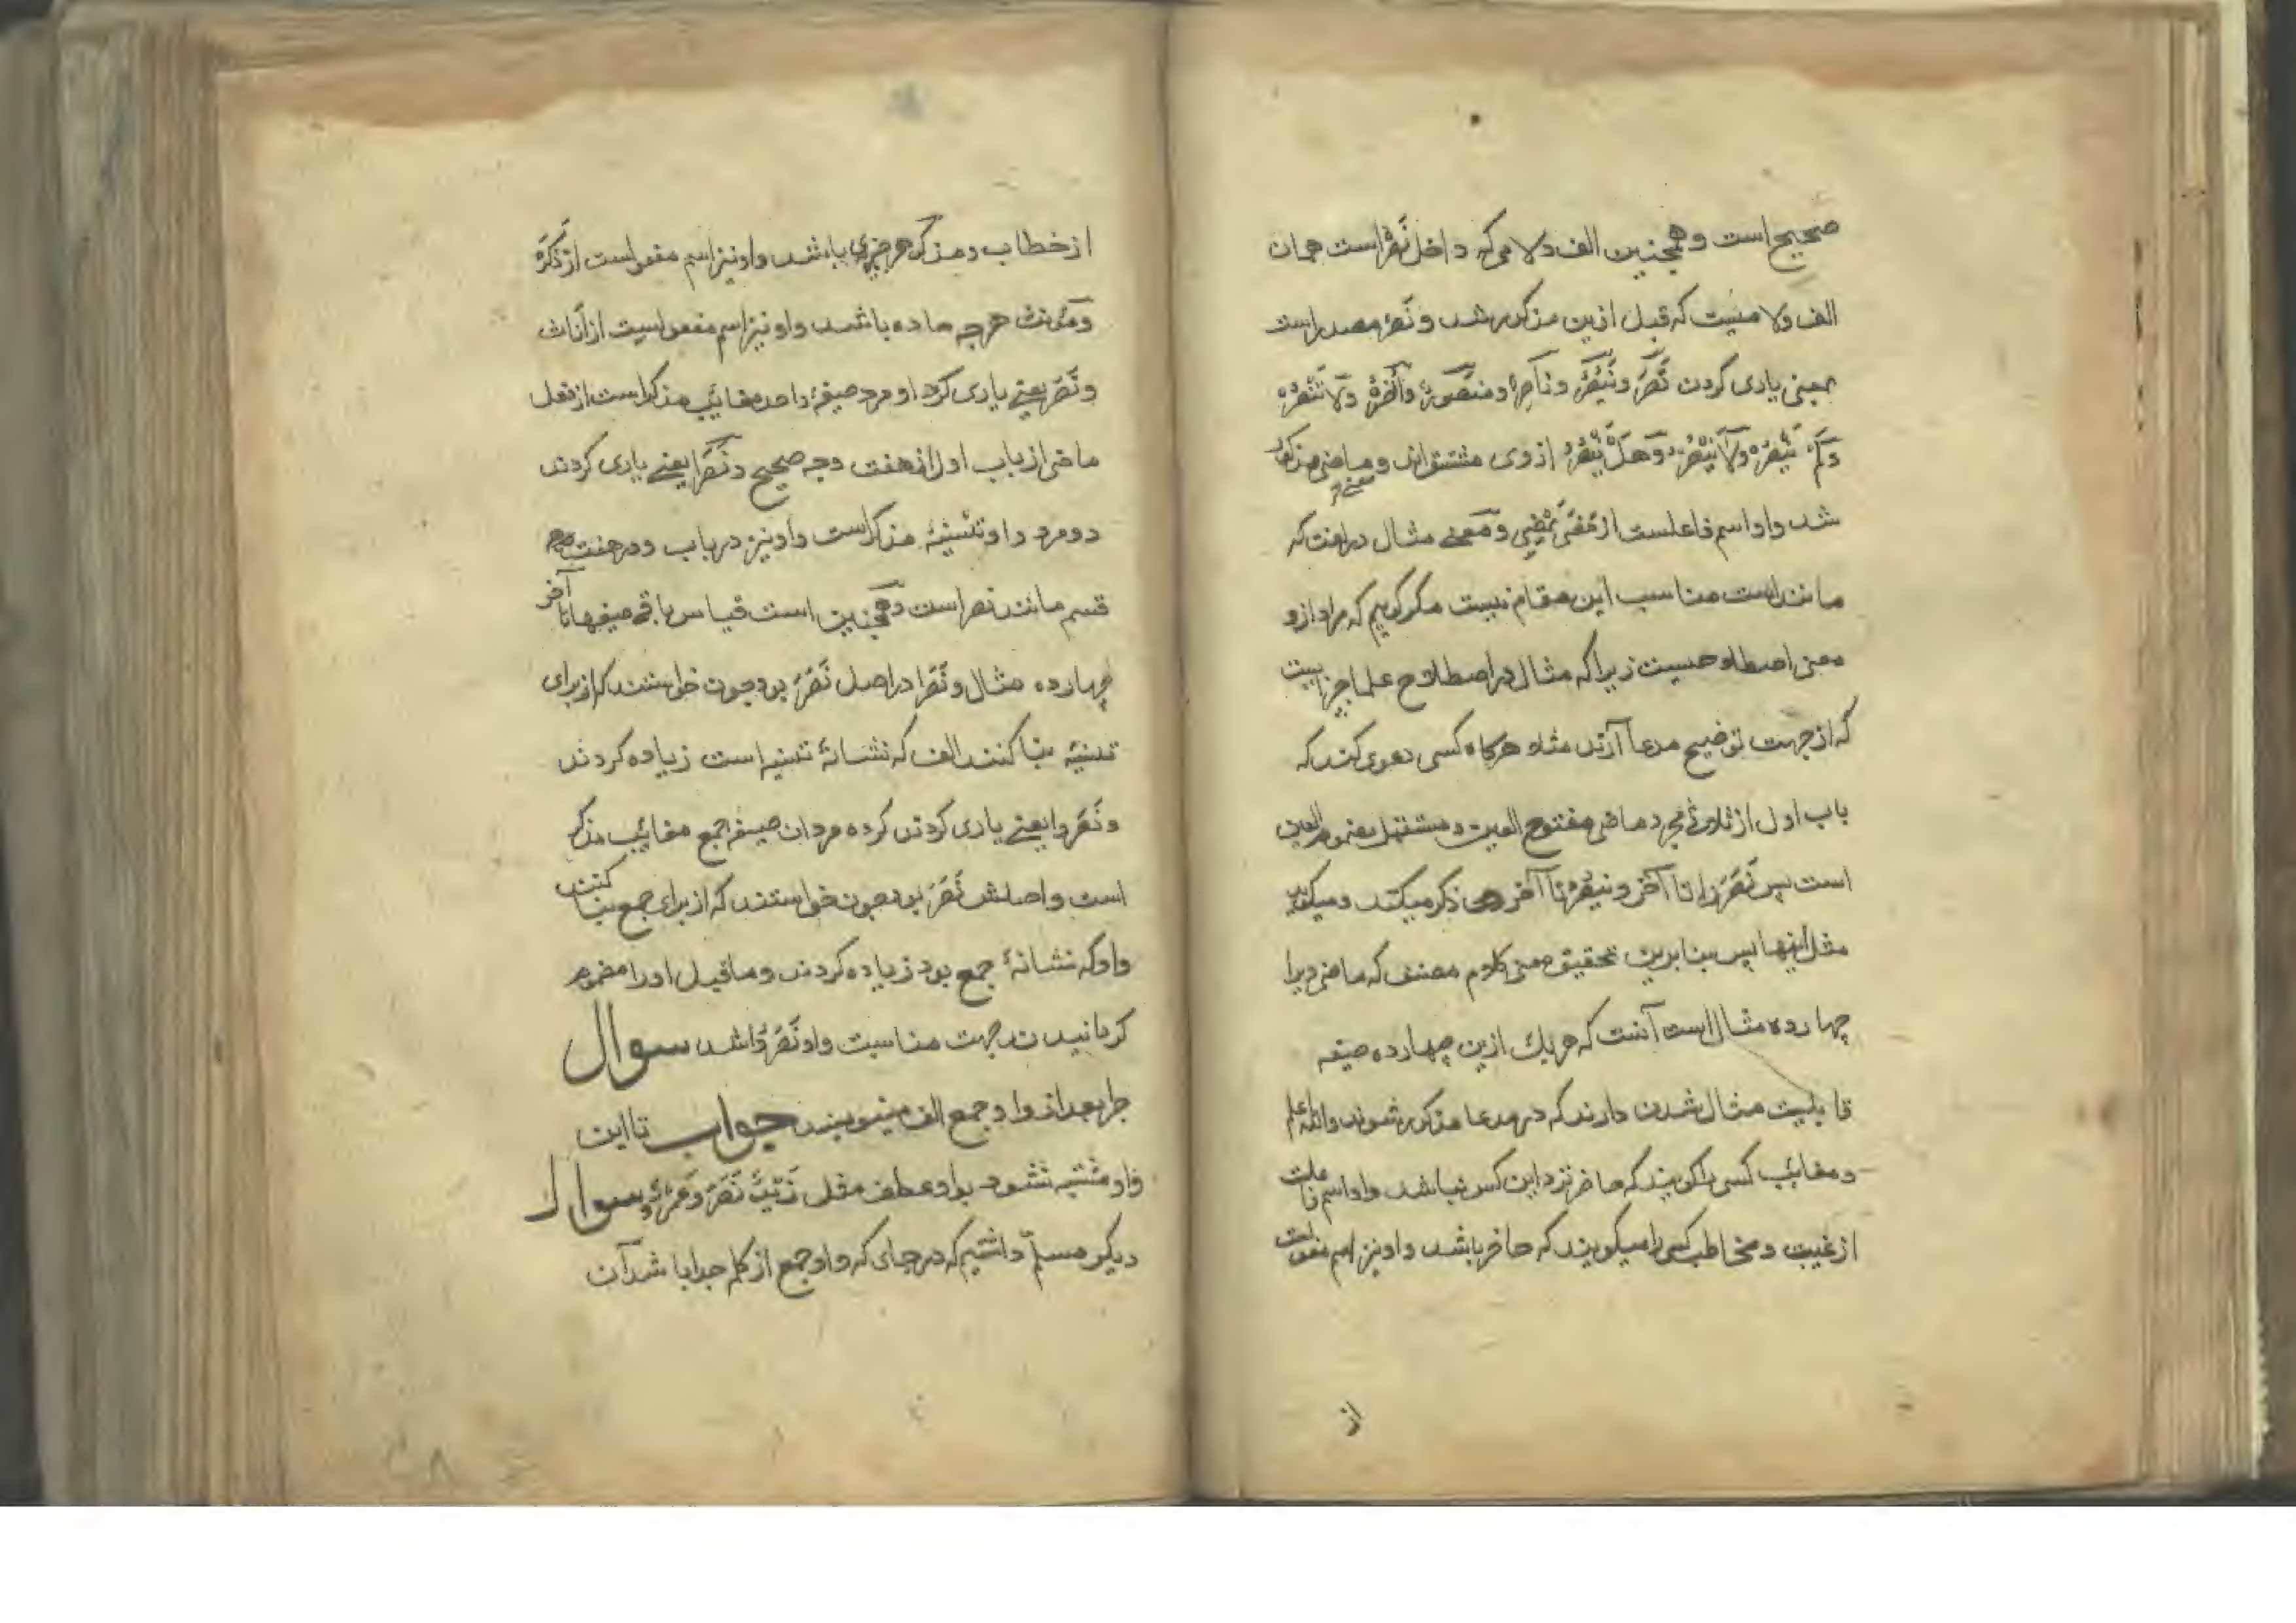 صحیح است و همچنین الف و لامی که داخل نصر است همان
الف و لا میست که قبل ازین مذکور شد و نصر مصدر است
بمعنی یاری کردن نَصَرَ و یَنْصُرُ و ناصر و منصور و اُنْصُرْ و لا تَنْصُرْ
و لم ینصر و لا ینصر و هل ینصر از وی مشتق‌اند و معنی ماضی مذکور
شد و او اسم فاعلست از مَضَی یَمْضِی و معنی مثال در لغت که
مانند است مناسب این مقام نیست مگر گویم که مراد ازو
معنی اصطلاحیست زیرا که مثال در اصطلاح علما چیزیست
که از جهت توضیح مدعا آرند مثلا هرگاه کسی دعوی کند که
باب اول از ثلاثی مجرد ماضی مفتوح العین و مستقبل مضموم العین
است پس نَصَرَ را تا آخر و ینصر تا آخر ذکر میکند و میگوید
مثل اینها پس بنا برین تحقیق معنی کلام مصنف که ماضی را
چهارده مثال است آنست که هر یك ازین چهارده صیغه
قابلیت مثال شدن دارند که در مدعا مذکور شوند والله اعلم
و مغایب کسی را گویند که حاضر نزد این کس نباشد و او اسم فاعلست
از غیبت و مخاطب کسی را میگویند که حاضر باشد و او نیز اسم مفعولست
از
از خطاب و مذکر هر چیزی باشد و او نیز اسم مفعول است از ذَکَّرَ
و مؤنث هرچه ماده باشد و او نیز اسم مفعولست از اناث
و نَصَرَ یعنے یاری کرد او مرد صیغهٔ واحد مغایب مذکر است از فعل
ماضی از باب اول از هفت وجه صحیح و نَصَرَا یعنے یاری کردند
دو مرد و او تثنیهٔ مذکر است و او نیز در باب و در هفت
قسم مانند نصر است و همچنین است قیاس باقی صیغها تا آخر
چهارده مثال و نَصَرَا در اصل نَصَرَ بود چون خواستند که از برای
تثنیه بنا کنند الف که نشانهٔ تثنیه است زیاده کردند
و نَصَرُوا یعنے یاری کردند کرده مردان صیغه جمع مغایب مذکر
است و اصلش نَصَرَ بود چون خواستند که از برای جمع بنا کنند
واو که نشانهٔ جمع بود زیاده کردند و ماقبل او را مضموم
گردانیدند جهت مناسبت واو نَصَرُوا شد سوال
چرا بعد از واو جمع الف مینویسند جواب تا این
واو مشتبه نشود بواو عطف مثل زَیْدٌ نَصَرَ وَعَمْرٌو سوال
دیگر مسلم داشتیم که در جای که واو جمع از کلمه جدا باشد آن